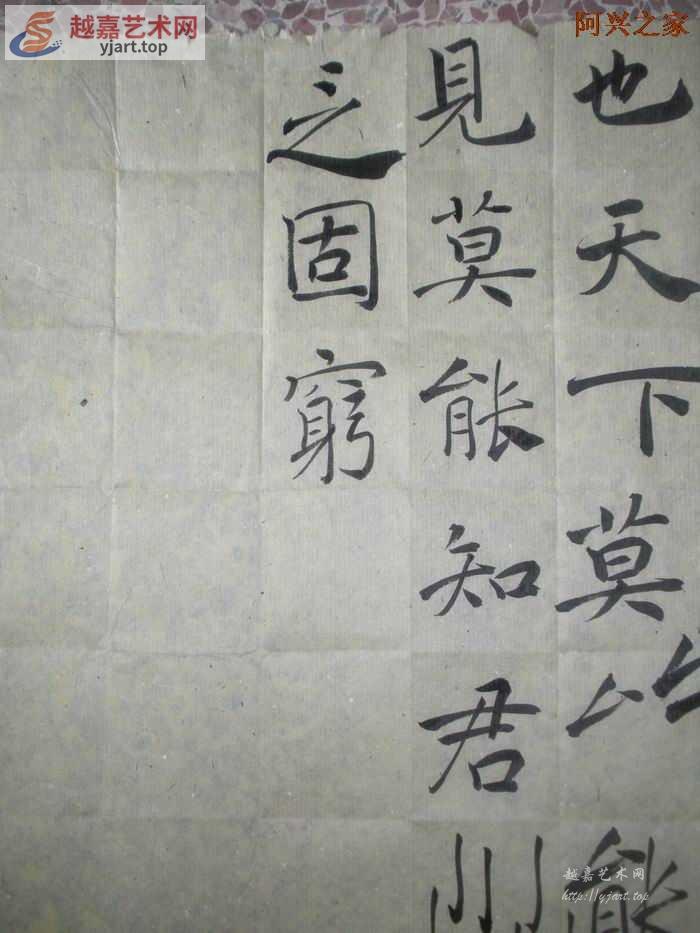 越嘉艺术网
yjart.top
阿兴之家
也天下莫能
見莫能知君
之固窮
越嘉艺术网
http://yjart.top